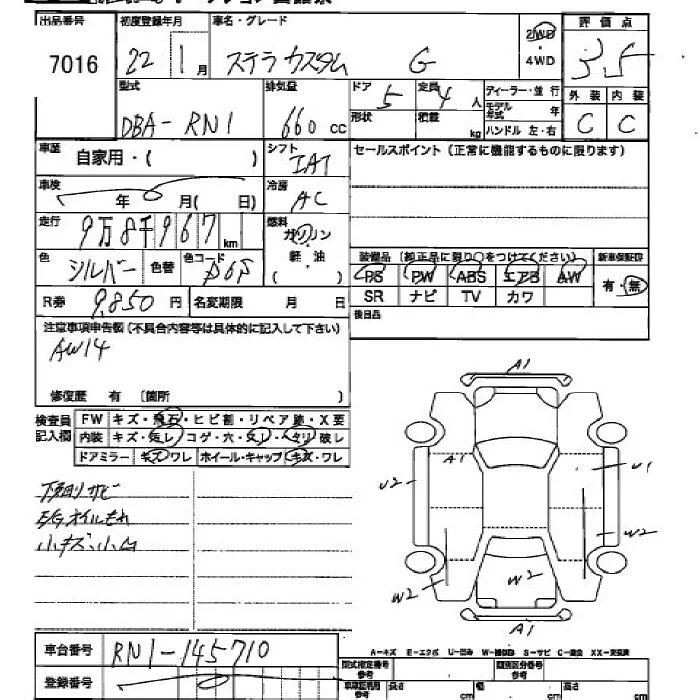 出品番号 初度登録年月 車名・グレード 2WD 評価点
7016 22 1月 ステラカスタム G 4WD 3.5
型式 排気量 ドア 5 定員 4人 ディーラー・並行 外装 内装
DBA-RN1 660cc 形状 積載 kg モデル年式 年 C C
ハンドル 左・右
車歴 自家用・( ) シフト IAT セールスポイント(正常に機能するものに限ります)
車検 年 月( 日) 冷房 AC
走行 9万8千967km 燃料 ガソリン
軽・油 装備品(純正品に限り○をつけてください) 新車保証印
色 シルバー 色替 色コード D6S PS PW ABS エアB AW 有・無
SR ナビ TV カワ
R券 9,850円 名変期限 月 日 後日品
注意事項申告欄(不具合内容等は具体的に記入して下さい)
AW14
修復歴 有 〔箇所 〕
検査員記入欄 FW キズ・飛石・ヒビ割・リペア跡・X要
内装 キズ・スレ コゲ・穴・シレ・ヘタリ 破レ
ドアミラー キズ・ワレ ホイール・キャップ キズ・ワレ
下廻りサビ
E/Gオイルもれ
小キズ、小凹
A1
A1
U2
U1
W2
W2
W2
A1
車台番号 RN1-145710
登録番号
A-キズ E-エクボ U-凹み W-補修跡 S-サビ C-腐食 XX-交換済
型式指定番号 参考 類別区分番号 参考
長さ cm 幅 cm 高さ cm